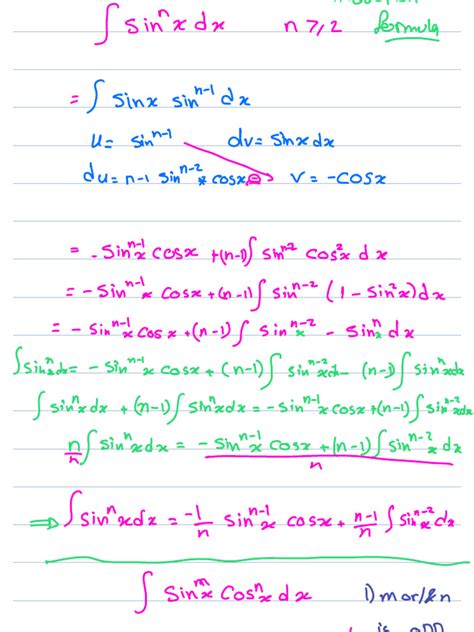 ∫ sinⁿx dx n ≥ 2 formula
= ∫ sinx sinⁿ⁻¹ dx
u = sinⁿ⁻¹ dv = sinx dx
du = n-1 sinⁿ⁻² * cosx ⊖ v = -cosx
= -sinⁿ⁻¹x cosx +(n-1)∫ sinⁿ⁻² cos²x dx
= -sinⁿ⁻¹x cosx +(n-1)∫ sinⁿ⁻² (1 - sin²x)dx
= -sinⁿ⁻¹x cosx +(n-1)∫ sinⁿ⁻²x - sinⁿx dx
∫sinⁿxdx = -sinⁿ⁻¹x cosx +(n-1)∫ sinⁿ⁻²xdx - (n-1)∫ sinⁿxdx
∫ sinⁿxdx +(n-1)∫ sinⁿxdx = -sinⁿ⁻¹x cosx +(n-1)∫ sinⁿ⁻²xdx
n/n ∫ sinⁿxdx = (-sinⁿ⁻¹x cosx +(n-1)∫ sinⁿ⁻²x dx)/n
⇒ ∫ sinⁿxdx = -1/n sinⁿ⁻¹x cosx + n-1/n ∫ sinⁿ⁻²x dx
∫ sinᵐx cosⁿx dx 1) m or/& n
is odd